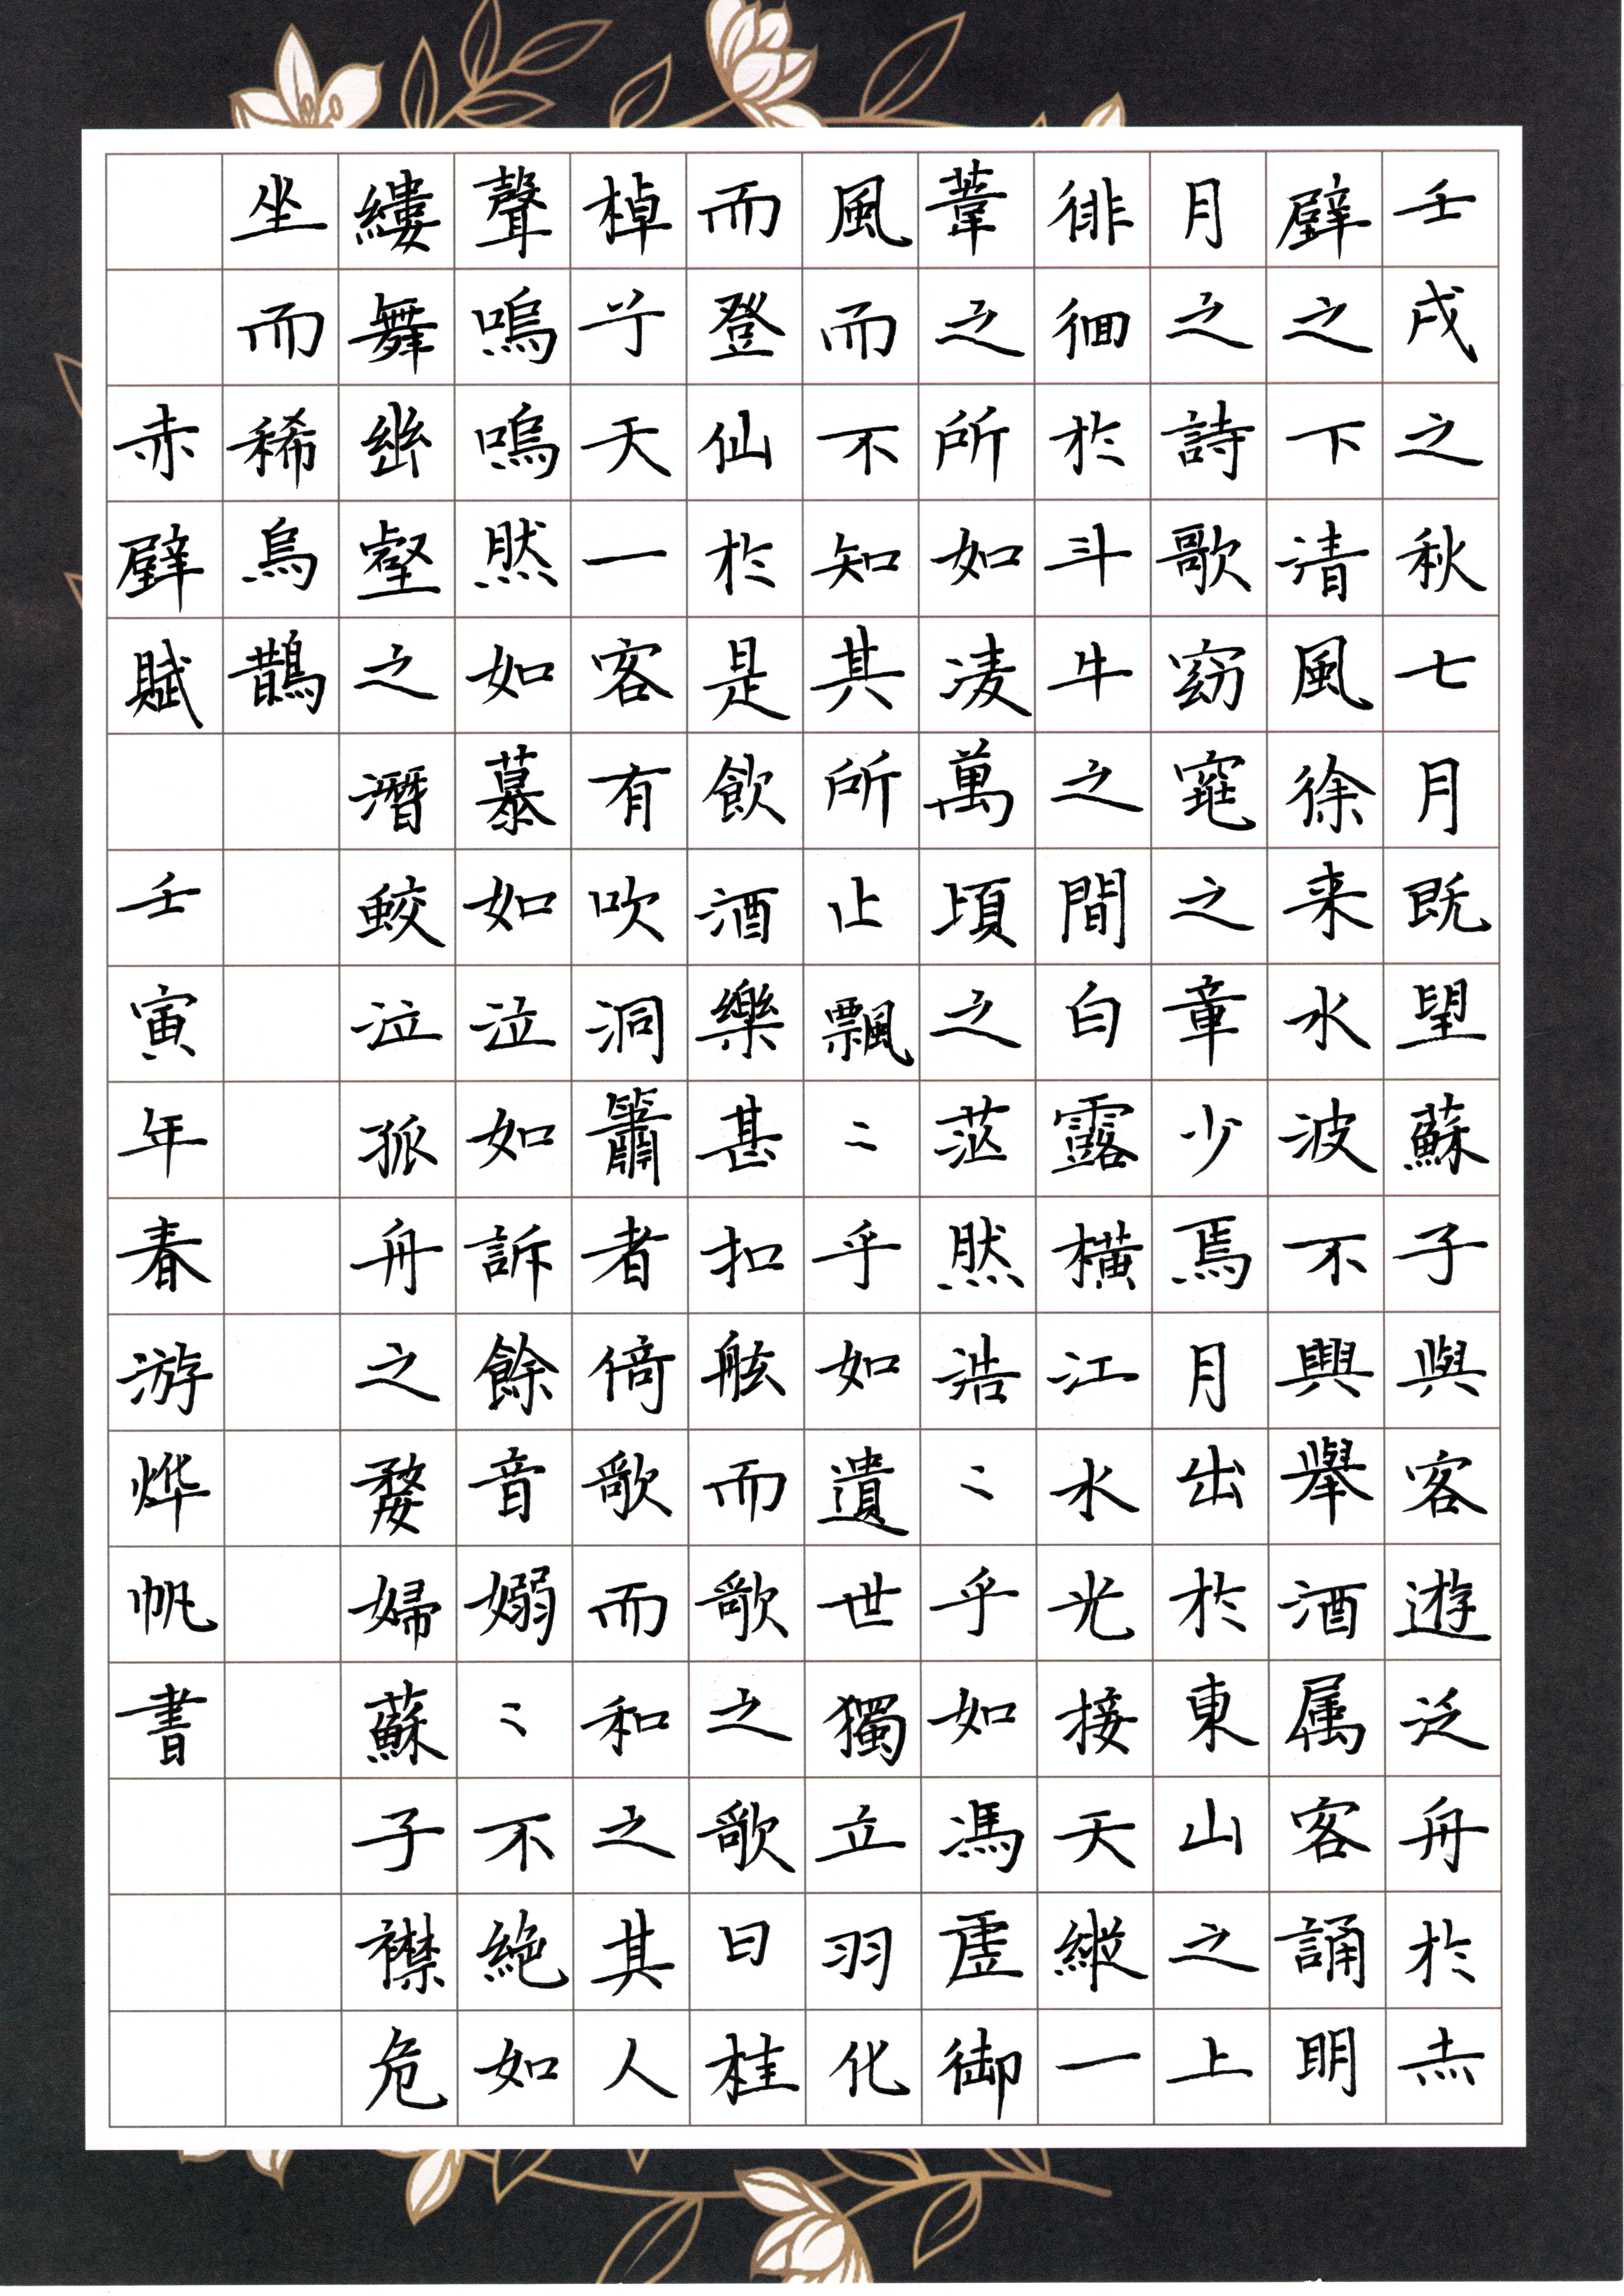 壬戌之秋七月既望蘇子與客遊泛舟於赤
壁之下清風徐来水波不興舉酒属客誦明
月之詩歌窈窕之章少焉月出於東山之上
徘徊於斗牛之間白露橫江水光接天縱一
葦之所如凌萬頃之茫然浩〻乎如馮虛御
風而不知其所止飄〻乎如遺世獨立羽化
而登仙於是飲酒樂甚扣舷而歌之歌曰桂
棹兮天一客有吹洞簫者倚歌而和之其人
聲嗚嗚然如慕如泣如訴餘音嫋〻不絕如
縷舞幽壑之潛蛟泣孤舟之嫠婦蘇子襟危
坐而稀烏鵲
赤壁賦 壬寅年春游烨帆書